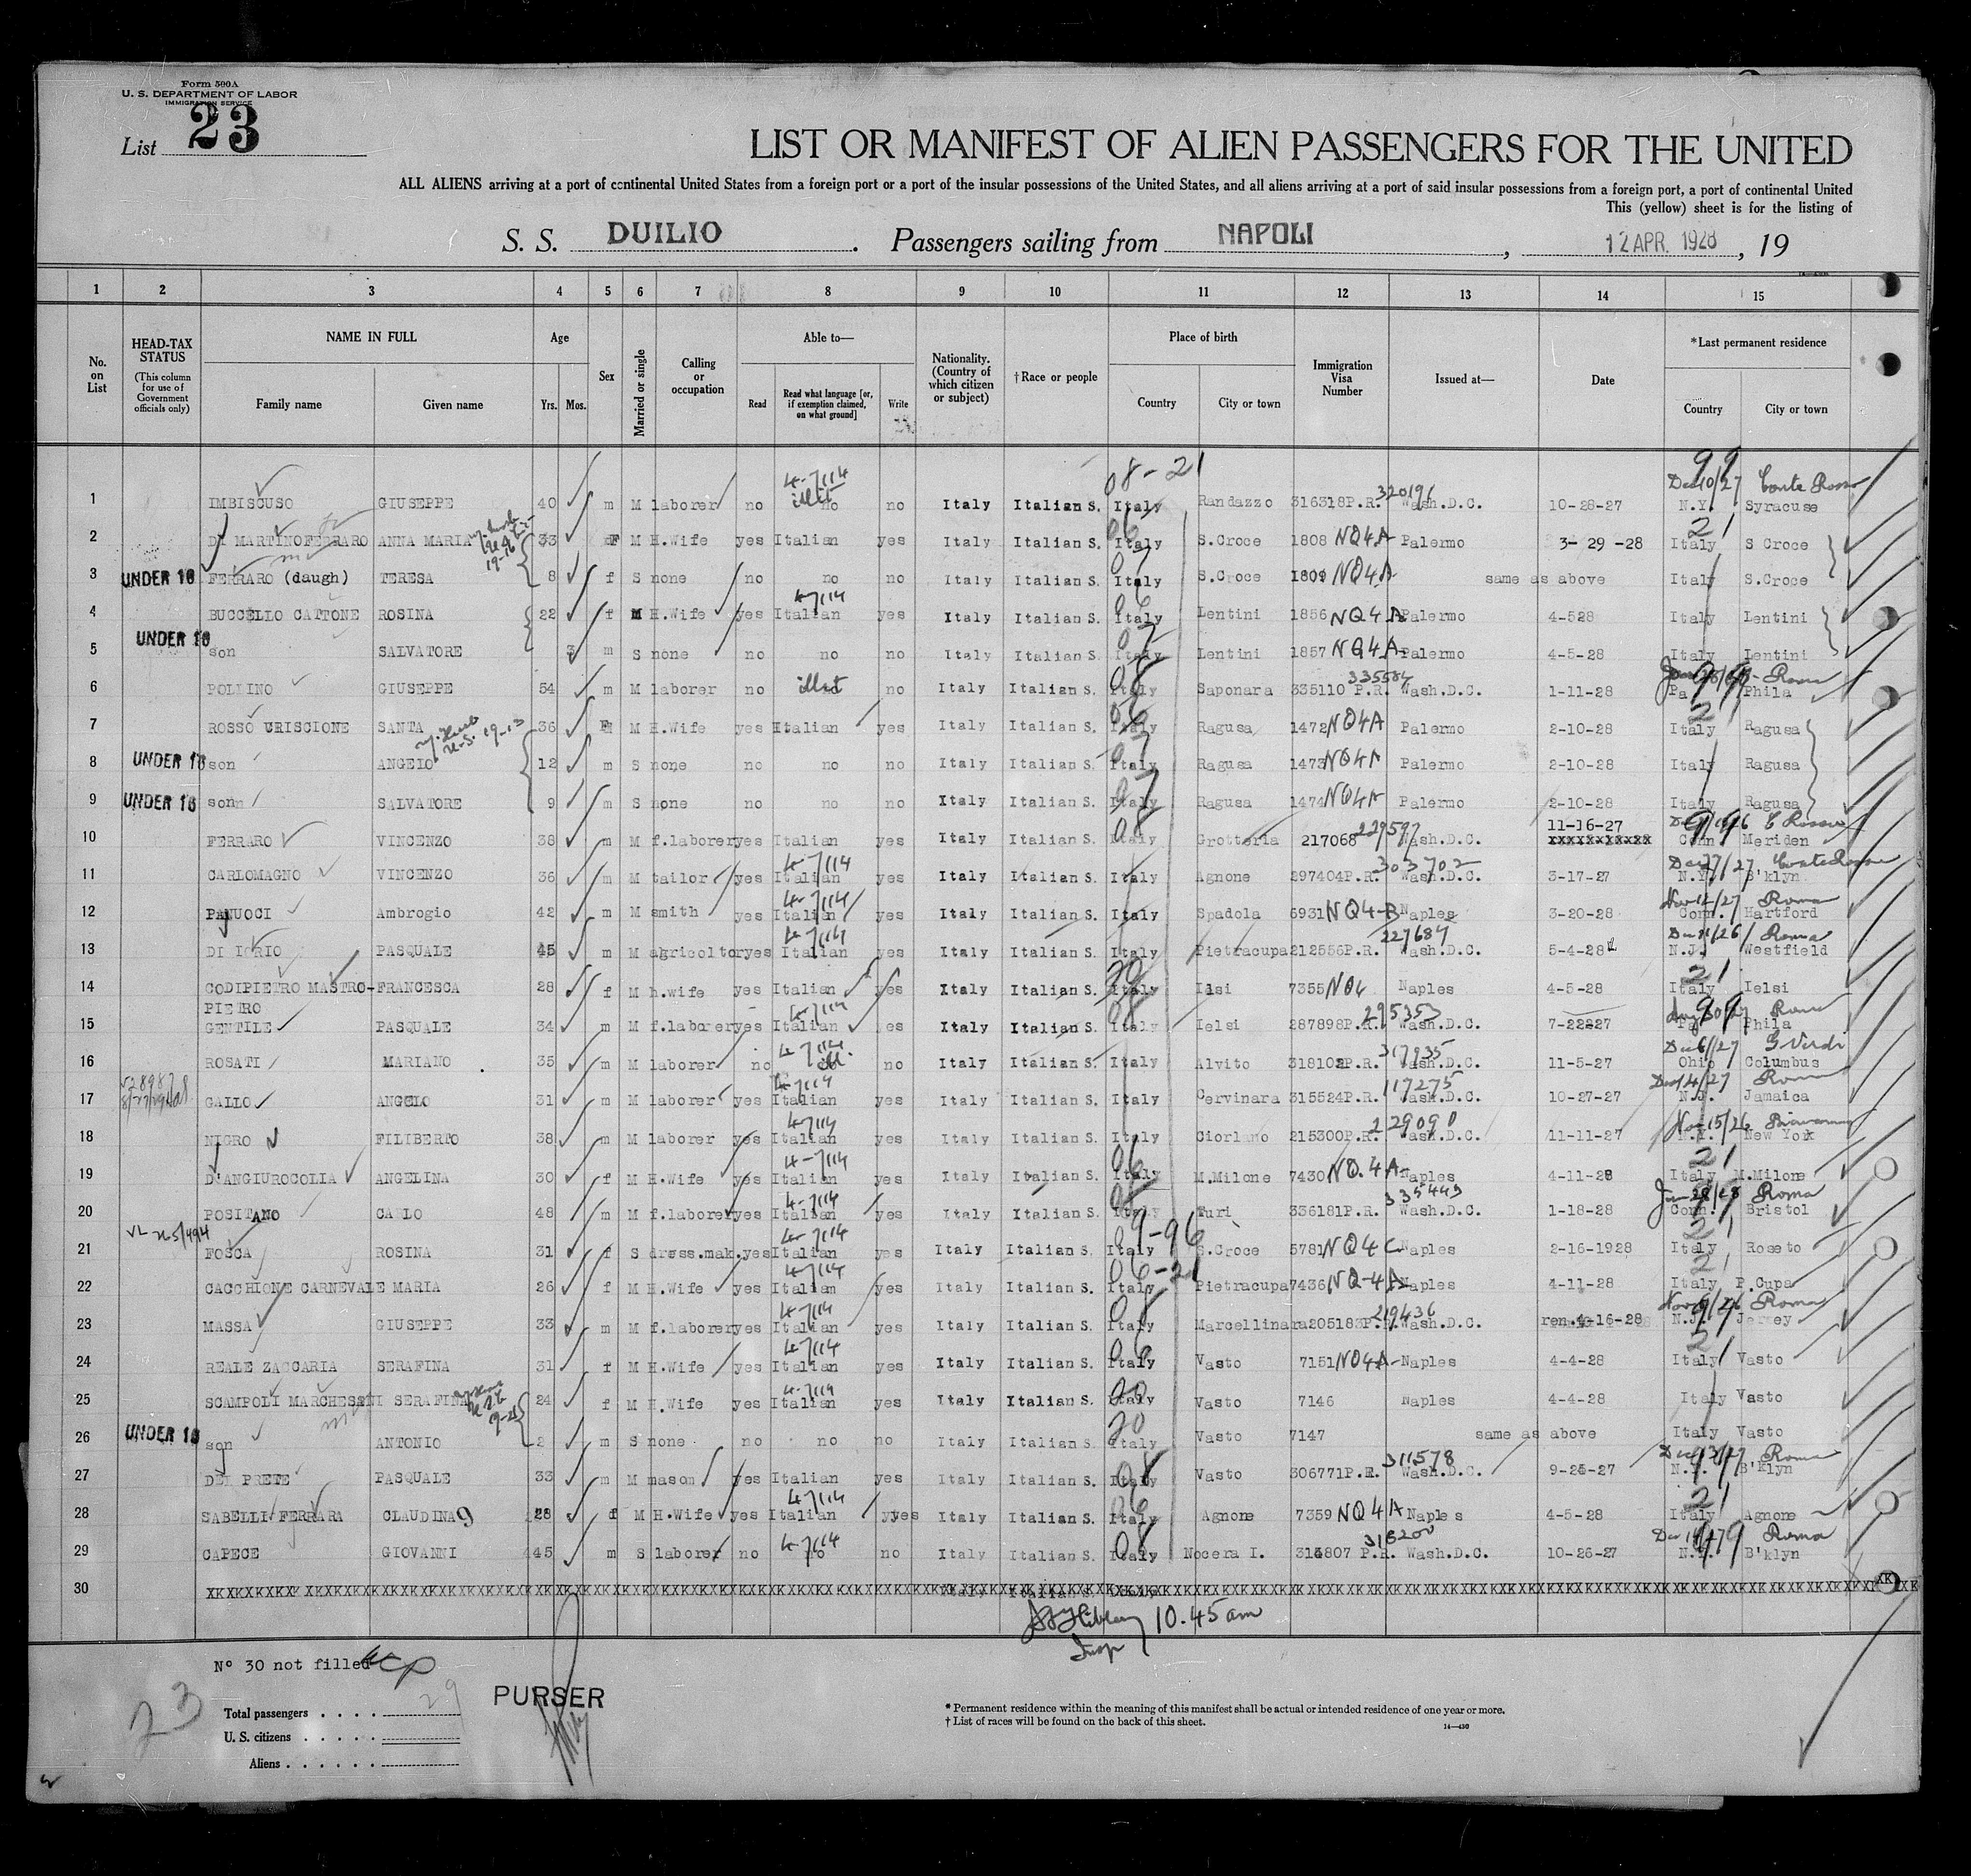 Form 500A
U. S. DEPARTMENT OF LABOR
IMMIGRATION SERVICE
List 23
LIST OR MANIFEST OF ALIEN PASSENGERS FOR THE UNITED
ALL ALIENS arriving at a port of continental United States from a foreign port or a port of the insular possessions of the United States, and all aliens arriving at a port of said insular possessions from a foreign port, a port of continental United
This (yellow) sheet is for the listing of
S. S. DUILIO. Passengers sailing from NAPOLI, 12 APR. 1928, 19
1 2 3 4 5 6 7 8 9 10 11 12 13 14 15
No. on List
HEAD-TAX STATUS (This column for use of Government officials only)
NAME IN FULL
Family name Given name
Age
Yrs. Mos.
Sex
Married or single
Calling or occupation
Able to—
Read Read what language [or, if exemption claimed, on what ground] Write
Nationality. (Country of which citizen or subject)
†Race or people
Place of birth
Country City or town
Immigration Visa Number
Issued at—
Date
*Last permanent residence
Country City or town
08-21 99
4-7/14 320191 Dec 10/27 Conte Rosso
1 IMBISCUSO GIUSEPPE 40 m M laborer no illit no no Italy Italian S. Italy Randazzo 316318P.R. Wash.D.C. 10-28-27 N.Y. Syracuse
2 DI MARTINO FERRARO ANNA MARIA 33 F M H.Wife yes Italian yes Italy Italian S. 06 Italy S.Croce 1808 NQ4A Palermo 3- 29 -28 21 Italy S Croce
3 UNDER 16 FERRARO (daugh) TERESA 8 f S none no no no Italy Italian S. 07 Italy S.Croce 1809 NQ4A same as above Italy S.Croce
4 BUCCELLO CATTONE ROSINA 22 f M H.Wife yes 4-7/14 Italian yes Italy Italian S. 06 Italy Lentini 1856 NQ4A Palermo 4-528 Italy Lentini
5 UNDER 16 son SALVATORE 3 m S none no no no Italy Italian S. 07 Italy Lentini 1857 NQ4A Palermo 4-5-28 Italy Lentini
6 POLLINO GIUSEPPE 54 m M laborer no illit no Italy Italian S. 08 Italy Saponara 335110 P.R. 335584 Wash.D.C. 1-11-28 Pa Phila
7 ROSSO CRISCIONE SANTA 36 F M H.Wife yes Italian yes Italy Italian S. 06 Italy Ragusa 1472 NQ4A Palermo 2-10-28 21 Italy Ragusa
8 UNDER 16 son ANGELO 12 m S none no no no Italy Italian S. 07 Italy Ragusa 1473 NQ4A Palermo 2-10-28 Italy Ragusa
9 UNDER 16 son SALVATORE 9 m S none no no no Italy Italian S. 07 Italy Ragusa 1474 NQ4A Palermo 2-10-28 Italy Ragusa
10 FERRARO VINCENZO 38 m M f.laborer yes Italian yes Italy Italian S. 08 Italy Grotteria 217068 229597 Wash.D.C. 11-16-27 Conn Meriden
11 CARLOMAGNO VINCENZO 36 m M tailor yes 4-7/14 Italian yes Italy Italian S. Italy Agnone 297404P.R. 303702 Wash.D.C. 3-17-27 Dec 27/27 N.Y. B'klyn
12 PANUOCI Ambrogio 42 m M smith yes 4-7/14 Italian yes Italy Italian S. Italy Spadola 6931 NQ4-B Naples 3-20-28 Nov 12/27 Roma Conn. Hartford
13 DI IORIO PASQUALE 45 m M agricoltor yes 4-7/14 Italian yes Italy Italian S. Italy Pietracupa 212556P.R. 227687 Wash.D.C. 5-4-28 Roma N.J. Westfield
14 CODIPIETRO MASTRO-PIETRO FRANCESCA 28 f M h.wife yes Italian yes Italy Italian S. 20 Italy Ilsi 7355 NQ4 Naples 4-5-28 21 Italy Ielsi
15 GENTILE PASQUALE 34 m M f.laborer yes 4-7/14 Italian yes Italy Italian S. 08 Italy Ielsi 287898P.R. 295353 Wash.D.C. 7-2227 Roma Pa Phila
16 ROSATI MARIANO 35 m M laborer no 4-7/14 ill. no Italy Italian S. Italy Alvito 318102P.R. 317935 Wash.D.C. 11-5-27 Dec 6/27 G Verdi Ohio Columbus
17 GALLO ANGELO 31 m M laborer yes 4-7/14 Italian yes Italy Italian S. Italy Cervinara 315524P.R. 117275 Wash.D.C. 10-27-27 Dec 14/27 Roma N.J. Jamaica
18 NIGRO FILIBERTO 38 m M laborer yes 4-7/14 Italian yes Italy Italian S. Italy Ciorlano 215300P.R. 229090 Wash.D.C. 11-11-27 Nov 15/26 N.Y. New York
19 D'ANGIUROCOLIA ANGELINA 30 f M H.Wife yes 4-7/14 Italian yes Italy Italian S. 06 Italy M.Milone 7430 NQ.4A- Naples 4-11-28 21 Italy M.Milone
20 POSITANO CARLO 48 m M f.laborer yes 4-7/14 Italian yes Italy Italian S. Italy Turi 336181P.R. 335443 Wash.D.C. 1-18-28 Jan 28/28 Roma Conn. Bristol
21 FOSCA ROSINA 31 f S dress.mak. yes 4-7/14 Italian yes Italy Italian S. 09-96 Italy S.Croce 5781 NQ4C Naples 2-16-1928 21 Italy Roseto
22 CACCHIONE CARNEVALE MARIA 26 f M H.Wife yes 4-7/14 Italian yes Italy Italian S. 06-21 Italy Pietracupa 7436 NQ-4A Naples 4-11-28 21 Italy P.Cupa
23 MASSA GIUSEPPE 33 m M f.laborer yes 4-7/14 Italian yes Italy Italian S. 08 Italy Marcellinara 205183P.R. 219436 Wash.D.C. ren.4-16-28 Roma N.J. Jersey
24 REALE ZACCARIA SERAFINA 31 f M H.Wife yes 4-7/14 Italian yes Italy Italian S. 06 Italy Vasto 7151 NQ4A- Naples 4-4-28 21 Italy Vasto
25 SCAMPOLI MARCHESANI SERAFINA 24 f M H.Wife yes 4-7/14 Italian yes Italy Italian S. 20 Italy Vasto 7146 Naples 4-4-28 Italy Vasto
26 UNDER 16 son ANTONIO 2 m S none no no no Italy Italian S. 20 Italy Vasto 7147 same as above Italy Vasto
27 DEL PRETE PASQUALE 33 m M mason yes Italian yes Italy Italian S. 08 Italy Vasto 306771P.R. 311578 Wash.D.C. 9-26-27 Dec 13/27 Roma N.Y. B'klyn
28 SABELLI FERRARA CLAUDINA 9 28 f M H.Wife yes 4-7/14 Italian yes Italy Italian S. 06 Italy Agnone 7359 NQ4A Naples 4-5-28 21 Italy Agnone
29 CAPECE GIOVANNI 45 m S laborer no 4-7/14 no no Italy Italian S. 08 Italy Nocera I. 314807 P.R. 316200 Wash.D.C. 10-26-27 Roma N.Y. B'klyn
30 Italy Italian S. Italy
10.45 am
Insp
Nº 30 not filled
23
PURSER
Total passengers . . . . 29
U. S. citizens . . . . .
Aliens . . . . . .
* Permanent residence within the meaning of this manifest shall be actual or intended residence of one year or more.
† List of races will be found on the back of this sheet.
14—430